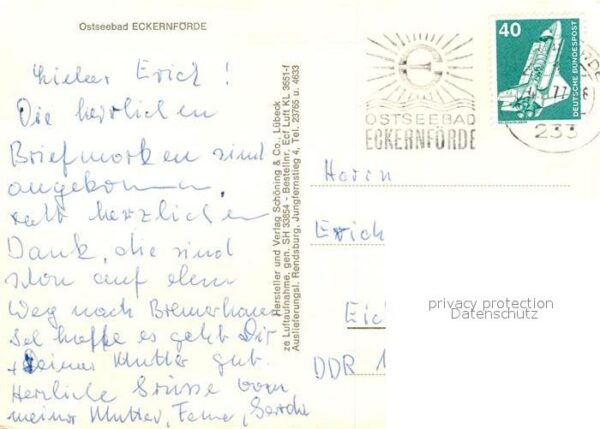 Ostseebad ECKERNFÖRDE
Lieber Erich!
Die herrlichen
Briefmarken sind
angekommen,
recht herzlichen
Dank, die sind
schon auf dem
Weg nach Bremerhaven
Ich hoffe es geht Dir
+ Deiner Mutter gut.
Herzliche Grüsse von
meiner Mutter,
Hersteller und Verlag Schöning & Co., Lübeck
ze Luftaufnahme, gen. SH 33854 - Bestellnr. Ecf Luft KL 3651-f
Auslieferungsl. Rendsburg, Jungfernstieg 4, Tel. 23765 u. 4633
OSTSEEBAD
ECKERNFÖRDE
40
DEUTSCHE BUNDESPOST
77
233
Herrn
Erich
DDR 1
privacy protection
Datenschutz